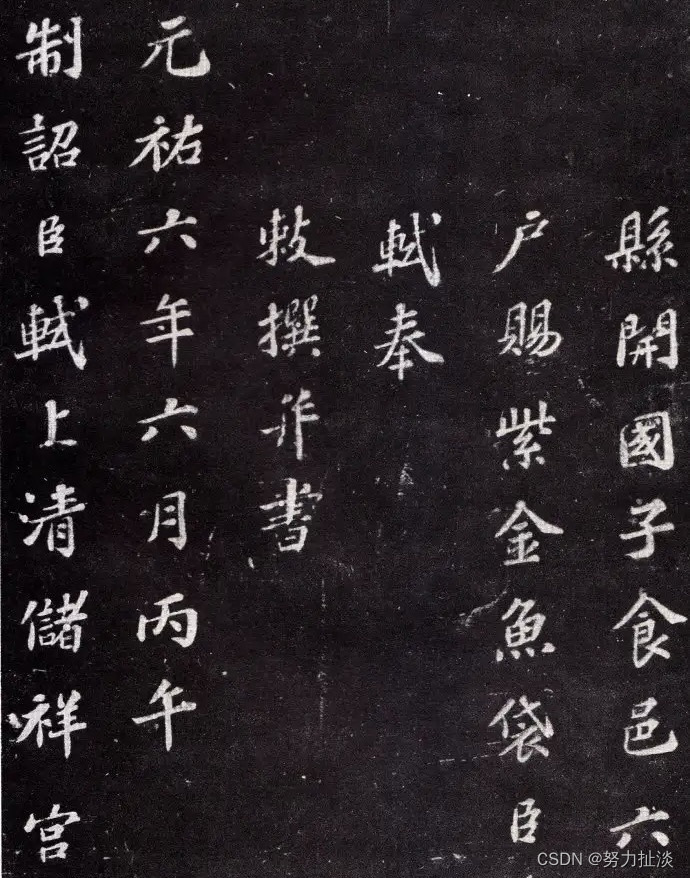 縣開國子食邑六
戶賜紫金魚袋臣
軾奉
敕撰并書
元祐六年六月丙午
制詔臣軾上清儲祥宮
CSDN @努力扯淡